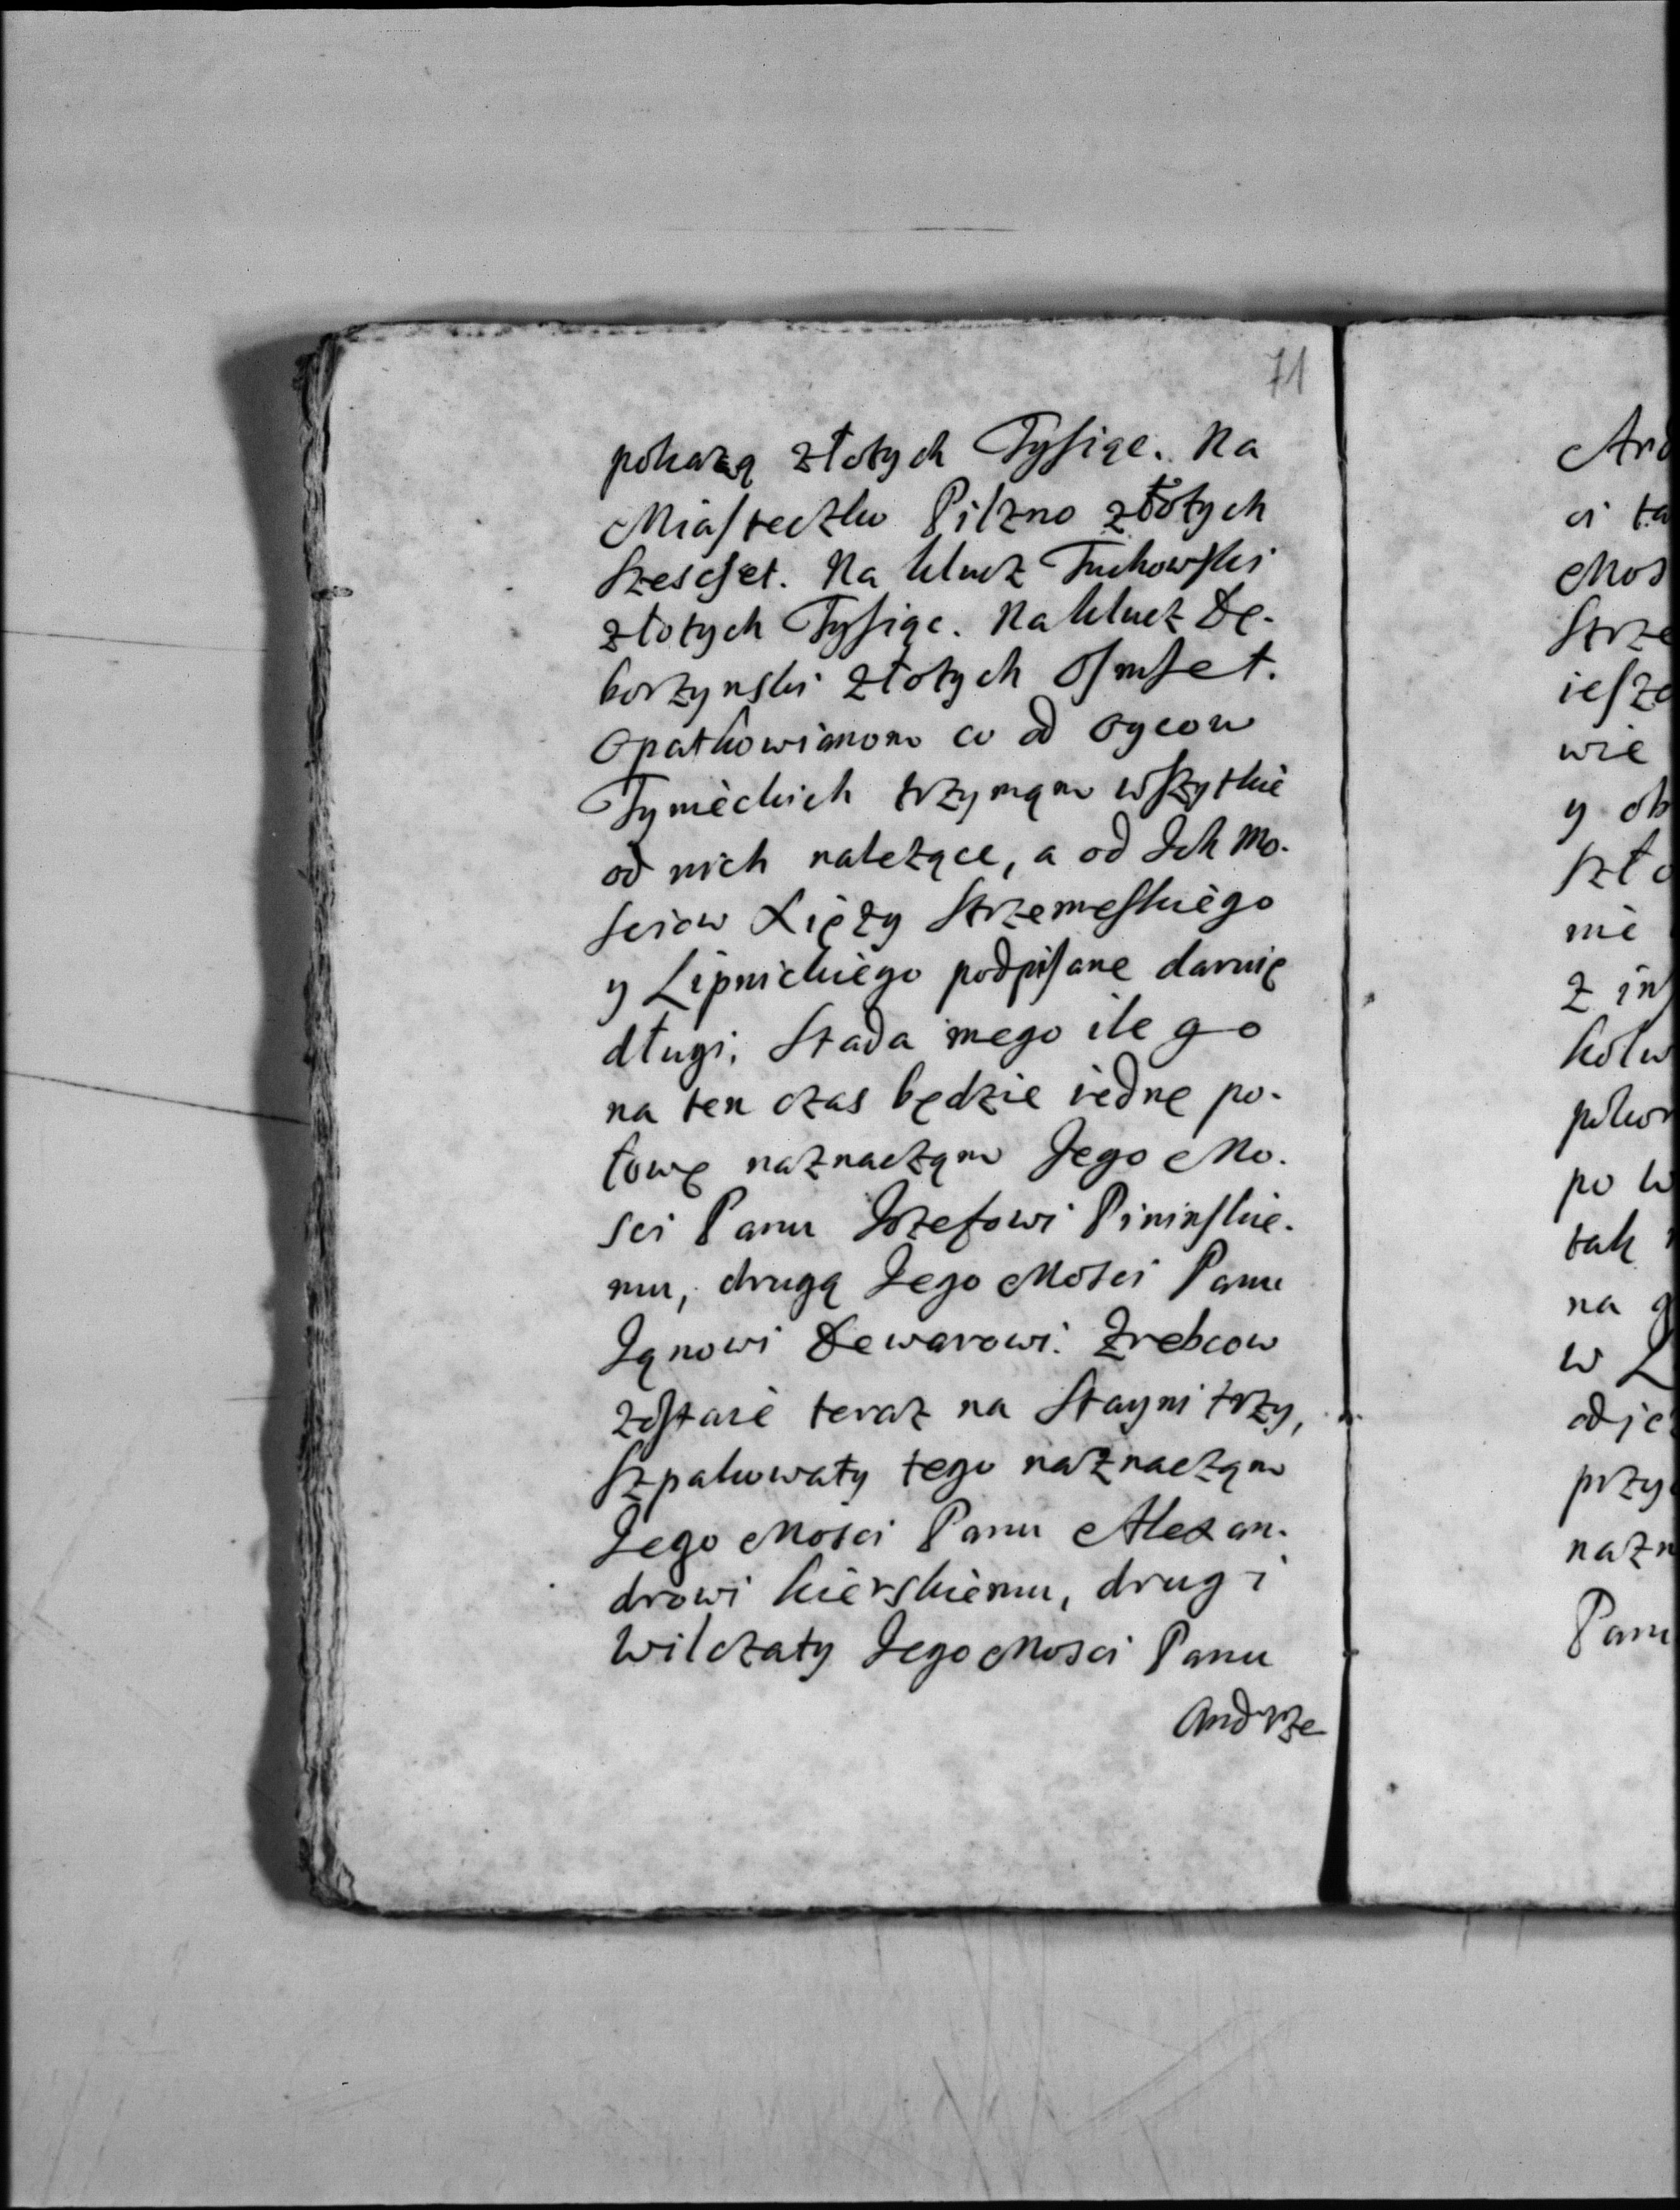 71
pokażą złotych Tysiąc. Na
Miasteczku Pilzno złotych
szescset. Na klucz Tuchowski
złotych Tysiąc. Na klucz Dę-
borzynski złotych osmset.
co od oycow
Tynieckich trzymąm wszytkie
od nich należące, a od Ich Mo-
sciow Xięży Strzemeskiego
y Lipnickiego podpisane daruię
długi. Stada mego ile go
na ten czas będzie iednę po-
łowę naznacząm Jego Mo-
sci Panu Jozefowi Pininskie-
mu, drugą Jego Mosci Panu
Jąnowi Dewarowi. Zrebcow
zostaie teraz na Stayni trzy,
Szpakowaty tego naznacząm
Jego Mosci Panu Alexan-
drowi kierskiemu, drugi
Wilczaty Jego Mosci Panu
Andrze
And
ci ta
Mos
Strze
iesze
wie
y ob
szło
nie
z in
kolw
pokor
po w
tak
na g
w L
odje
przy
nazn
Panu